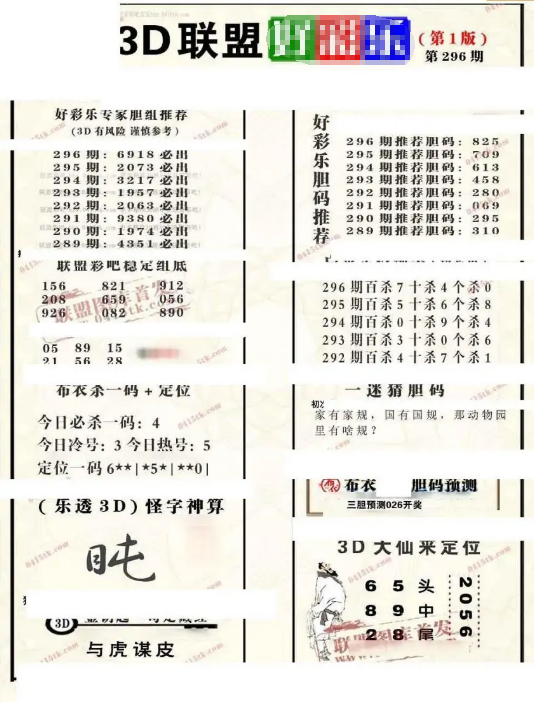 3D联盟
(第1版)
第296期
好彩乐专家胆组推荐
(3D有风险 谨慎参考)
296期: 6918必出
295期: 2073必出
294期: 3217必出
293期: 1957必出
292期: 2063必出
291期: 9380必出
290期: 1974必出
289期: 4351必出
联盟彩吧稳定组底
156 821 912
208 659 056
926 082 890
05 89 15
21 56 28
布衣杀一码+定位
今日必杀一码: 4
今日冷号: 3 今日热号: 5
定位一码6**|*5*|**0|
(乐透3D)怪字神算
3D
与虎谋皮
好彩乐胆码推荐
296期推荐胆码: 825
295期推荐胆码: 709
294期推荐胆码: 613
293期推荐胆码: 458
292期推荐胆码: 280
291期推荐胆码: 069
290期推荐胆码: 295
289期推荐胆码: 310
296期百杀7十杀4个杀0
295期百杀5十杀6个杀8
294期百杀0十杀9个杀4
293期百杀3十杀0个杀6
292期百杀4十杀7个杀1
一迷猜胆码
家有家规，国有国规，那动物园
里有啥规？
布衣 胆码预测
三胆预测026开奖
3D大仙来定位
6 5 头
8 9 中
2 8 尾
2056
联盟图库首发
0415tk.com